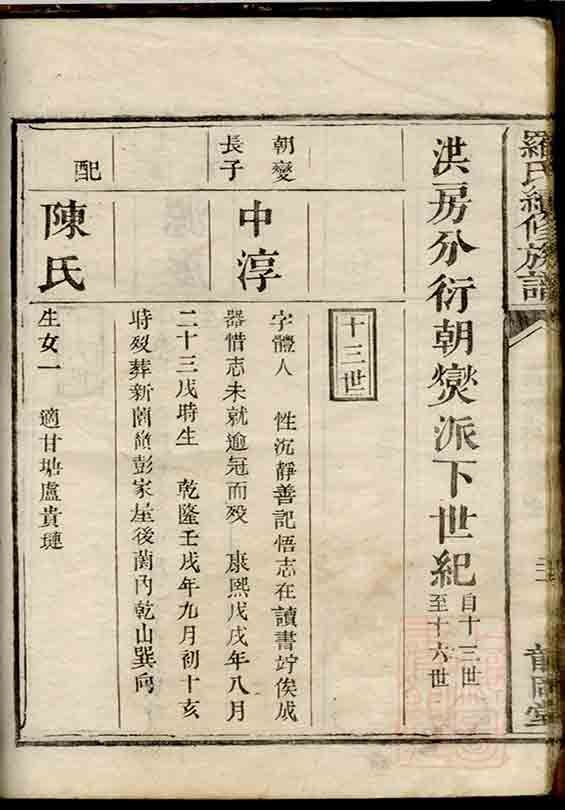 羅氏續修族譜
洪房分衍朝燮派下世紀
自十三世
至十六世
十三世
朝燮
長子
中淳
字體人 性沉靜善記悟志在讀書竚俟成
器惜志未就逾冠而歿 康熙戊戌年八月
二十三戌時生 乾隆壬戌年九月初十亥
時歿葬新闢嶺彭家屋後菌內乾山巽向
配
陳氏
生女一 適甘塘盧貴璉